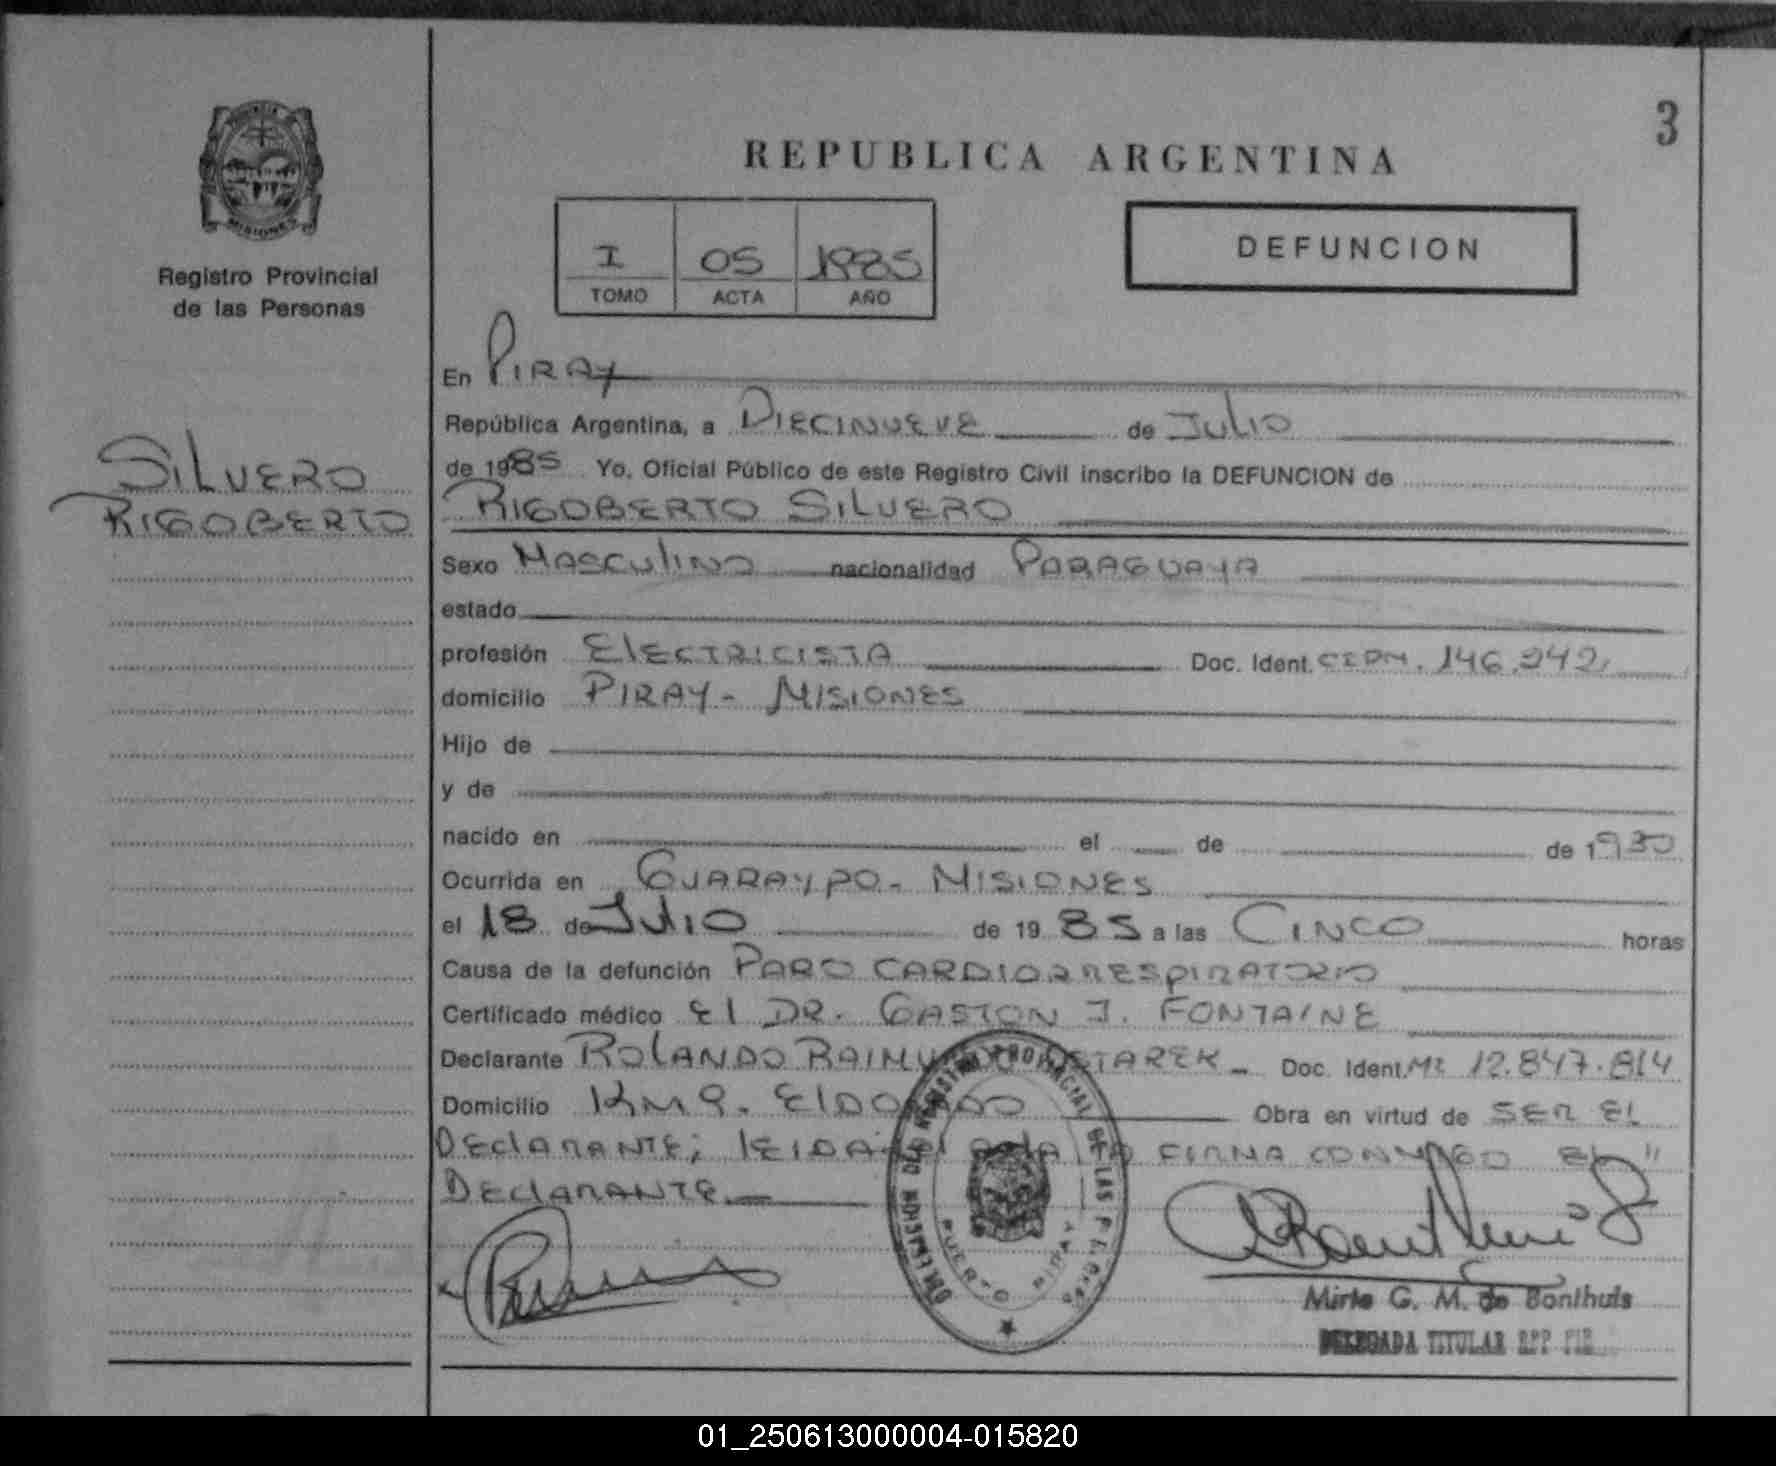 3
REPUBLICA ARGENTINA
MISIONES
Registro Provincial
de las Personas
I 05 1985
TOMO ACTA AÑO
DEFUNCION
SILVERO
RIGOBERTO
En PIRAY
República Argentina, a DIECINUEVE de JULIO
de 1985 Yo, Oficial Público de este Registro Civil inscribo la DEFUNCION de
RIGOBERTO SILVERO
Sexo MASCULINO nacionalidad PARAGUAYA
estado
profesión ELECTRICISTA Doc. Ident. CIPM. 146.242
domicilio PIRAY - MISIONES
Hijo de
y de
nacido en el de de 1930
Ocurrida en GUARAYPO - MISIONES
el 18 de JULIO de 1985 a las CINCO horas
Causa de la defunción PARO CARDIORRESPIRATORIO
Certificado médico El DR. GASTON J. FONTAINE
Declarante ROLANDO RAIMUNDO Doc. Ident. MI 12.847.814
Domicilio KM 9. ElDORADO Obra en virtud de SER EL
DEClARANTE; lEIDA el acta la FIRMA CONMIGO EL "
DEClARANTE
PUERTO PIRAY
Mirta G. M. de Bonthuis
DELEGADA TITULAR RPP PIR
01_250613000004-015820